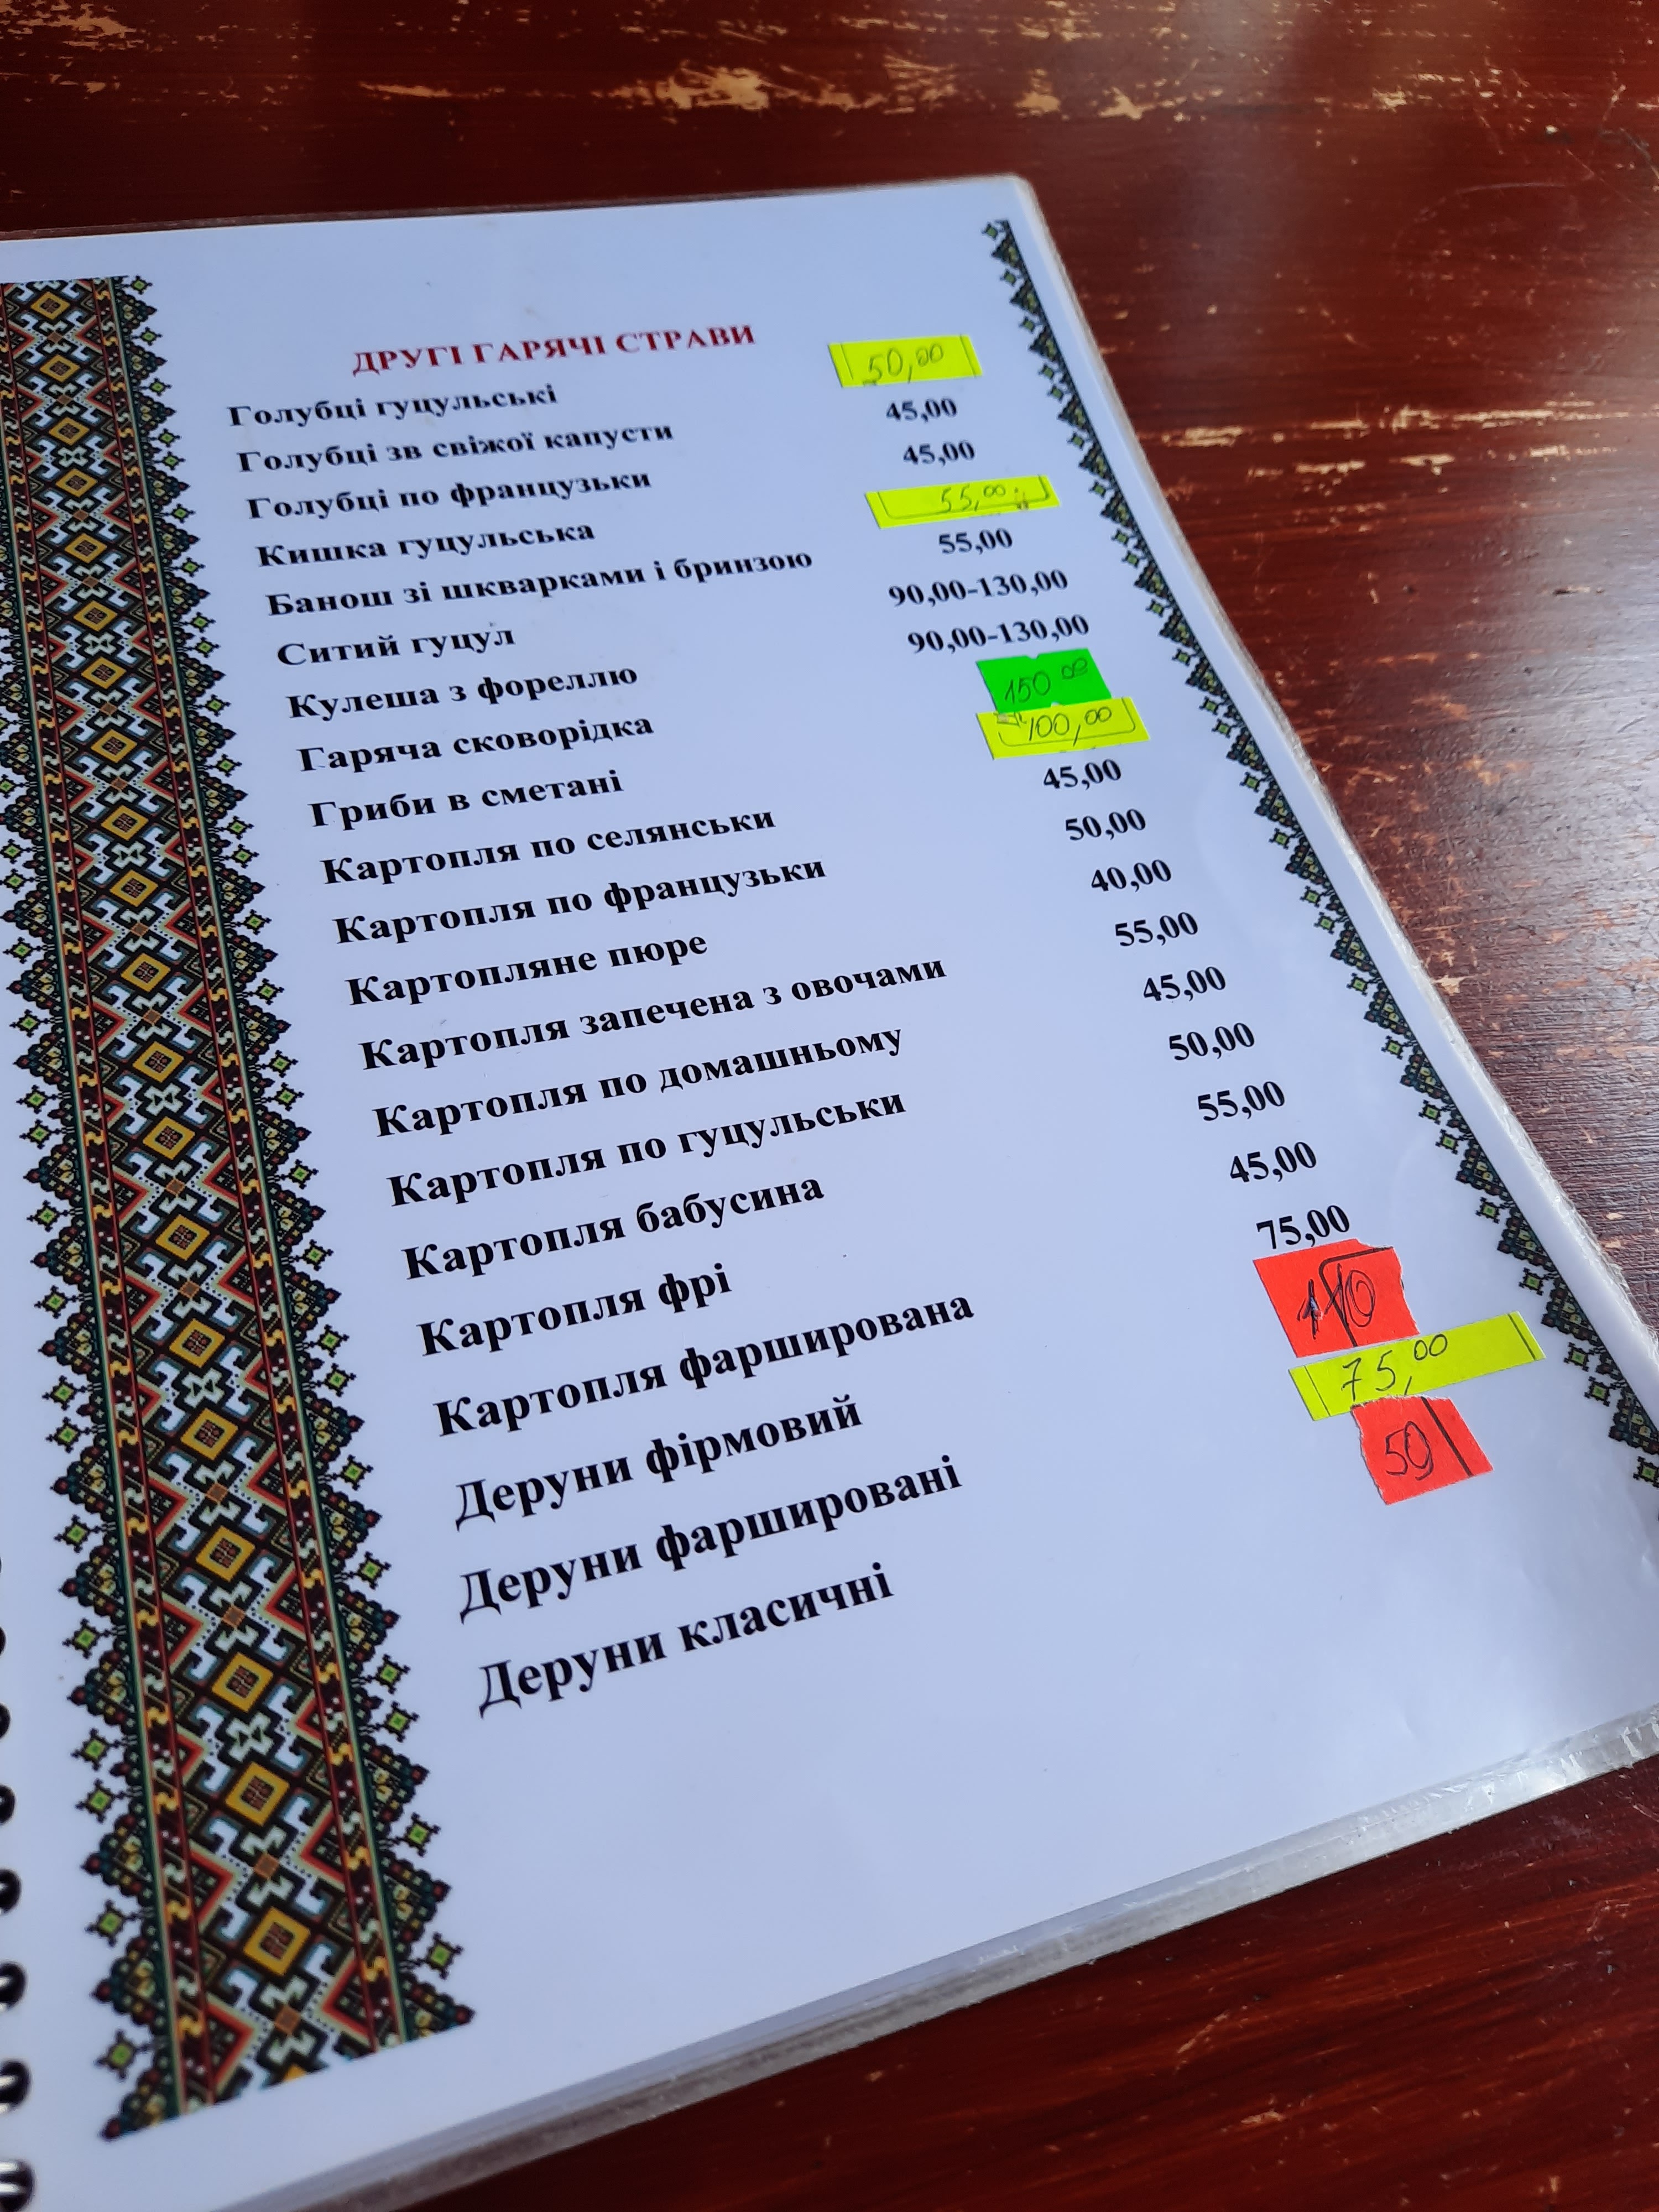 ДРУГІ ГАРЯЧІ СТРАВИ
Голубці гуцульські 50,00
Голубці зв свіжої капусти 45,00
Голубці по французьки 45,00
Кишка гуцульська 55,00
Банош зі шкварками і бринзою 55,00
Ситий гуцул 90,00-130,00
Кулеша з фореллю 90,00-130,00
Гаряча сковорідка 150 00
Гриби в сметані 100,00
Картопля по селянськи 45,00
Картопля по французьки 50,00
Картопляне пюре 40,00
Картопля запечена з овочами 55,00
Картопля по домашньому 45,00
Картопля по гуцульськи 50,00
Картопля бабусина 55,00
Картопля фрі 45,00
Картопля фарширована 75,00
Деруни фірмовий 110
Деруни фаршировані 75,00
Деруни класичні 50